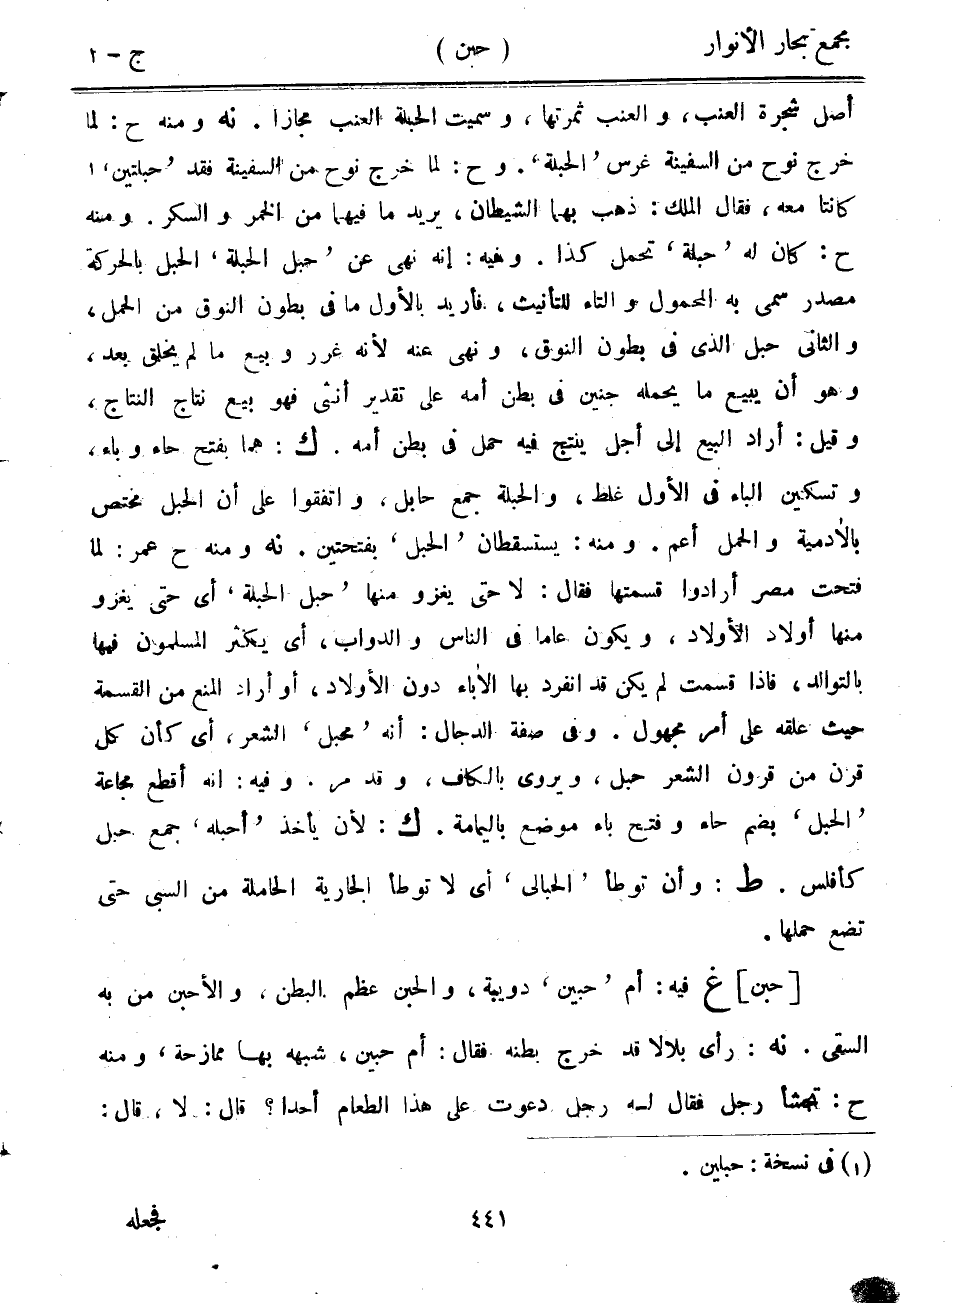 مجمع بحار الأنوار
( حبن )
ج - ٢
أصل شجرة العنب، و العنب ثمرتها، و سميت الحبلة العنب مجازا. نه و منه ح: لما
خرج نوح من السفينة غرس ’الحبلة‘. و ح: لما خرج نوح من السفينة فقد ’حبلتين‘ ١
كانتا معه، فقال الملك: ذهب بهما الشيطان، يريد ما فيهما من الخمر و السكر. و منه
ح: كان له ’حبلة‘ تحمل كذا. و فيه: إنه نهى عن ’حبل الحبلة‘ الحبل بالحركة
مصدر سمى به المحمول و التاء للتأنيث، فأريد بالأول ما فى بطون النوق من الحمل،
و الثانى حبل الذى فى بطون النوق، و نهى عنه لأنه غرر و بيع ما لم يخلق بعد،
و هو أن يبيع ما يحمله جنين فى بطن أمه على تقدير أنثى فهو بيع نتاج النتاج،
و قيل: أراد البيع إلى أجل ينتج فيه حمل فى بطن أمه. ك: هما بفتح حاء و باء،
و تسكين الباء فى الأول غلط، و الحبلة جمع حابل، و اتفقوا على أن الحبل مختص
بالأدمية و الحمل أعم. و منه: يستسقطان ’الحبل‘ بفتحتين. نه و منه ح عمر: لما
فتحت مصر أرادوا قسمتها فقال: لا حتى يغزو منها ’حبل الحبلة‘ أى حتى يغزو
منها أولاد الأولاد، و يكون عاما فى الناس و الدواب، أى يكثر المسلمون فيها
بالتوالد، فاذا قسمت لم يكن قد انفرد بها الأباء دون الأولاد، أو أراد المنع من القسمة
حيث علقه على أمر مجهول. و فى صفة الدجال: أنه ’محبل‘ الشعر، أى كأن كل
قرن من قرون الشعر حبل، و يروى بالكاف، و قد مر. و فيه: انه أقطع مجاعة
’الحبل‘ بضم حاء و فتح باء موضع باليمامة. ك: لأن يأخذ ’أحبله‘ جمع حبل
كأفلس. ط: و أن توطأ ’الحبالى‘ أى لا توطأ الجارية الحاملة من السبى حتى
تضع حملها.
[حبن] غ فيه: أم ’حبين‘ دويبة، و الحبن عظم البطن، و الأحبن من به
السقى. نه: رأى بلالا قد خرج بطنه فقال: أم حبين، شبهه بها ممازحة‘ و منه
ح: تجشأ رجل فقال له رجل دعوت على هذا الطعام أحدا؟ قال: لا، قال:
(١) فى نسخة: حبلين.
٤٤١
فجعله